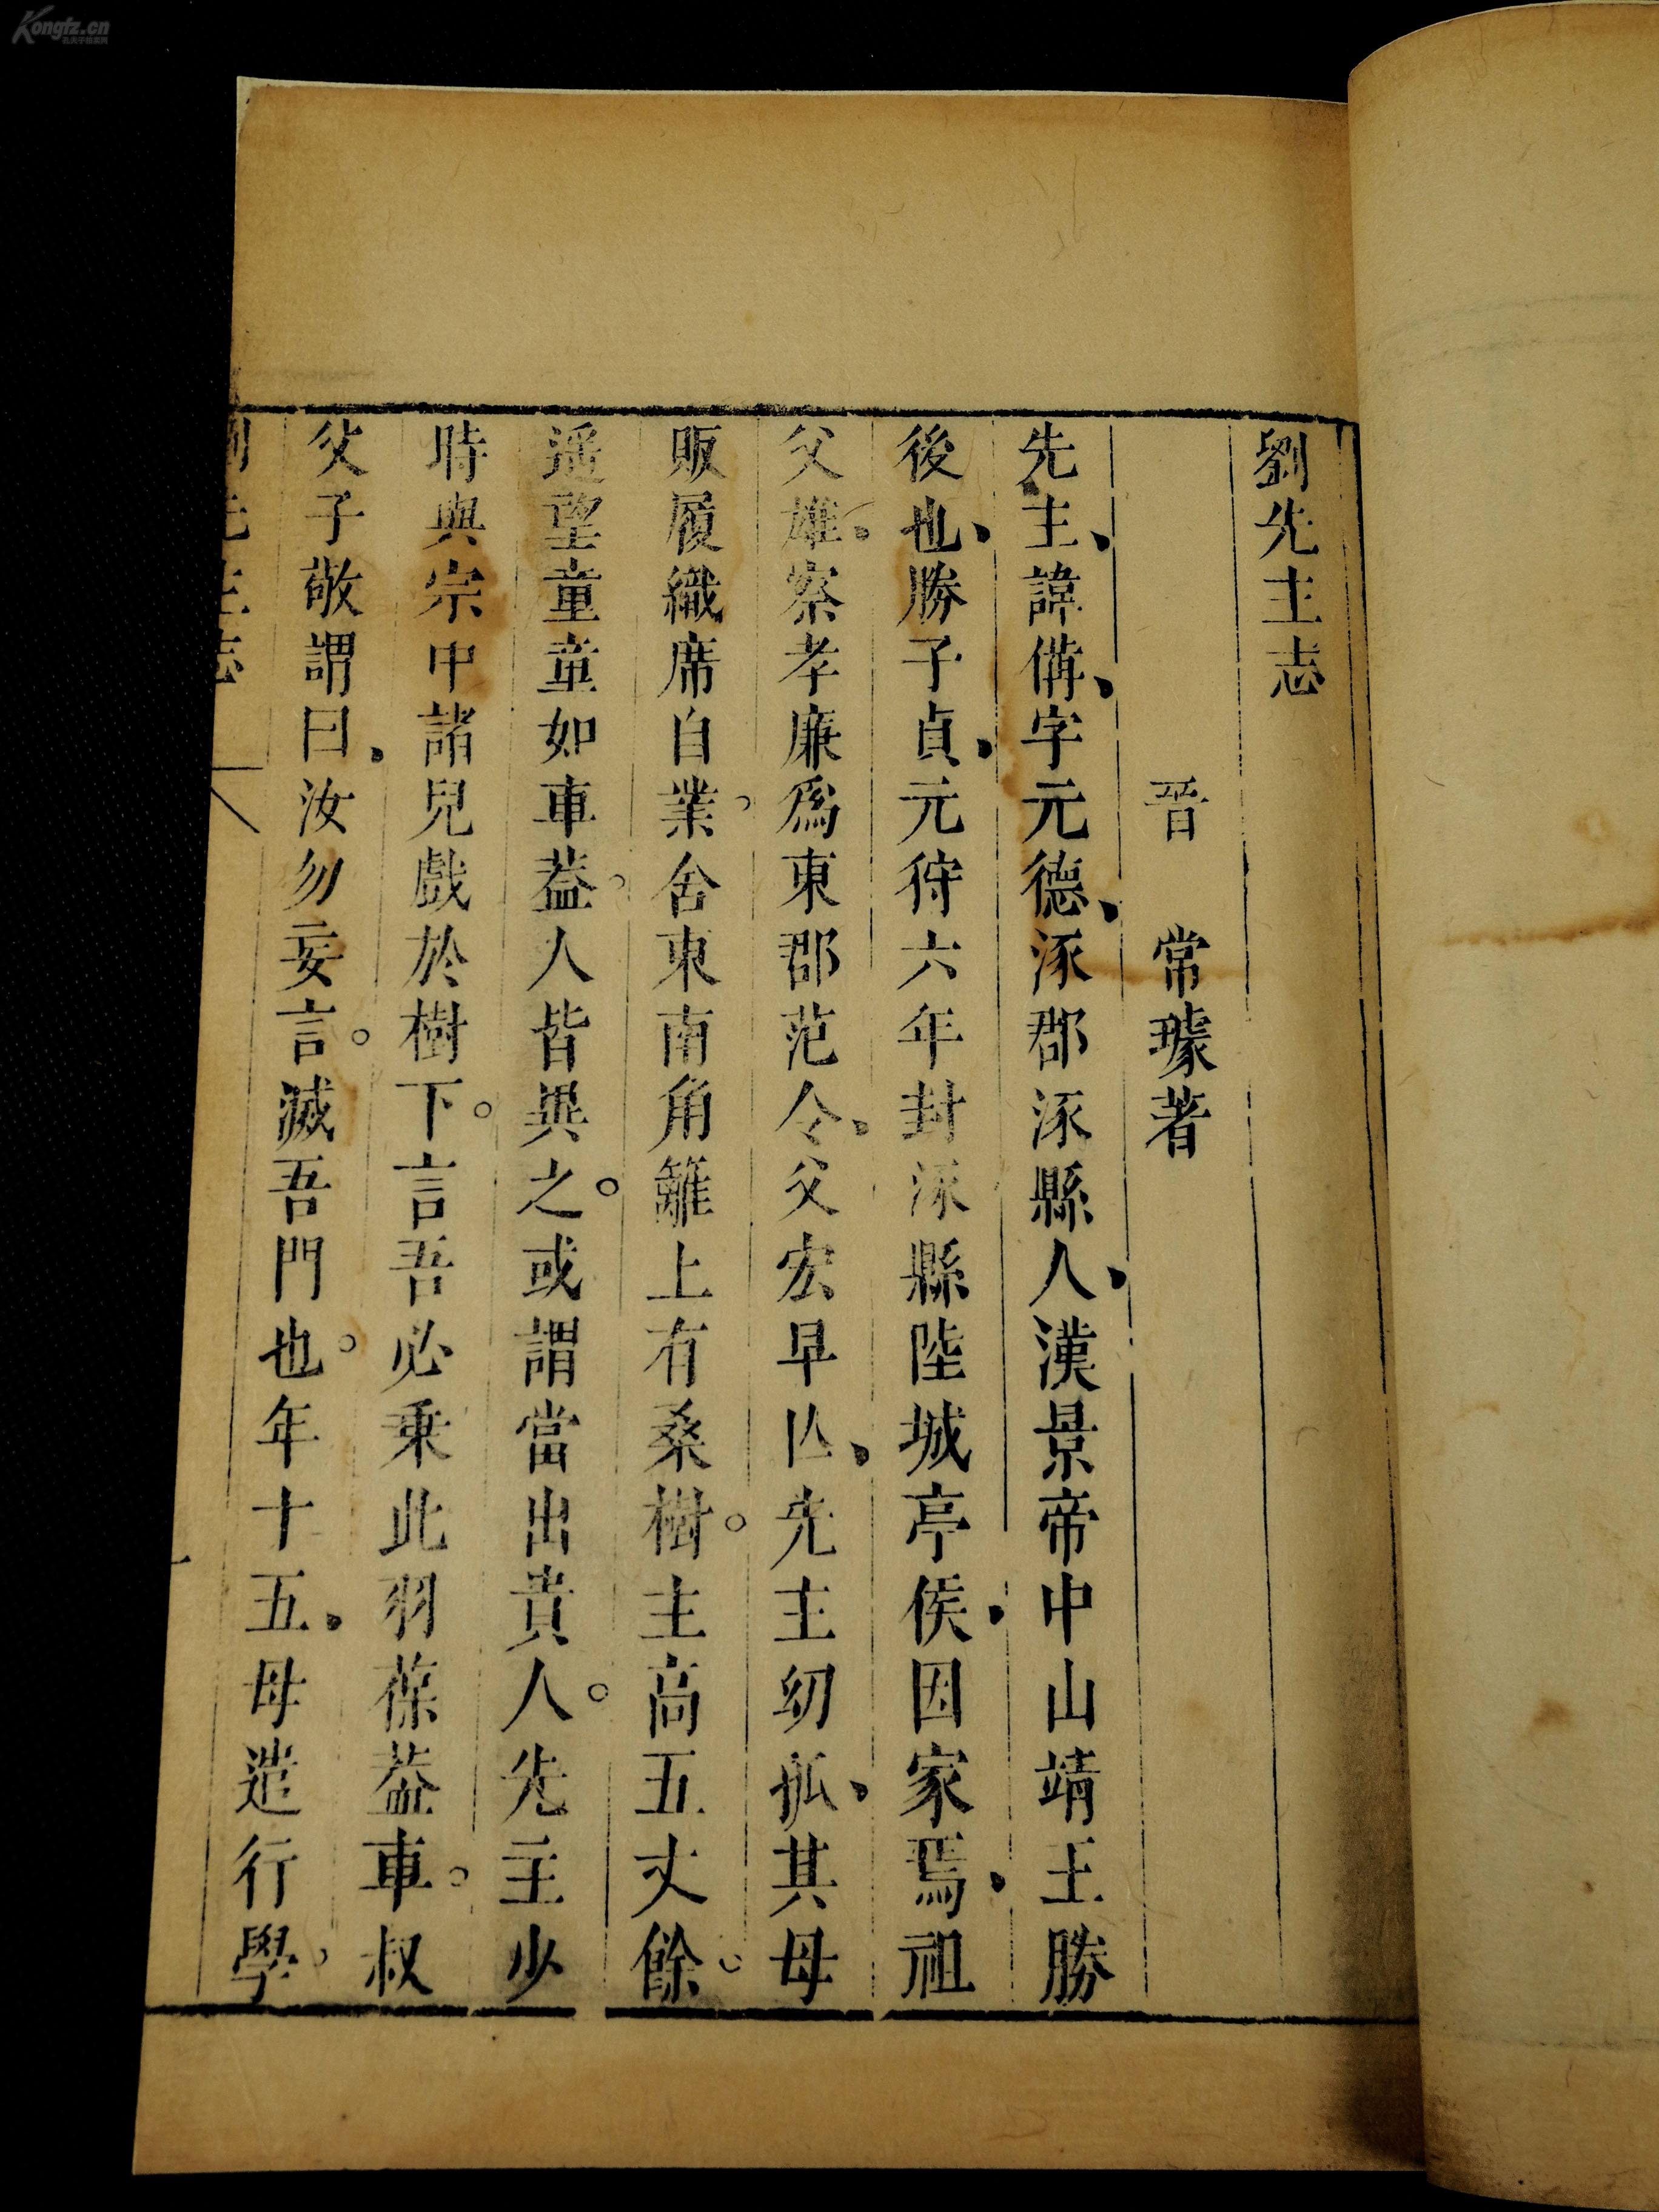 Kongfz.cn
孔夫子旧书网
劉先主志
晉 常璩著
先主、諱備、字元德、涿郡涿縣人、漢景帝中山靖王勝
後也、勝子貞、元狩六年封涿縣陸城亭侯、因家焉、祖
父雄、察孝廉爲東郡范令、父父宏早亾、先主幼孤、其母
販履織席自業、舍東南角籬上有桑樹。主高五丈餘。
遥望童童如車葢。人皆異之。或謂當出貴人。先主少
時與宗中諸兒戲於樹下。言吾必乗此羽葆葢車。叔
父子敬謂曰、汝勿妄言。滅吾門也。年十五、母遣行學、
劉先主志 一